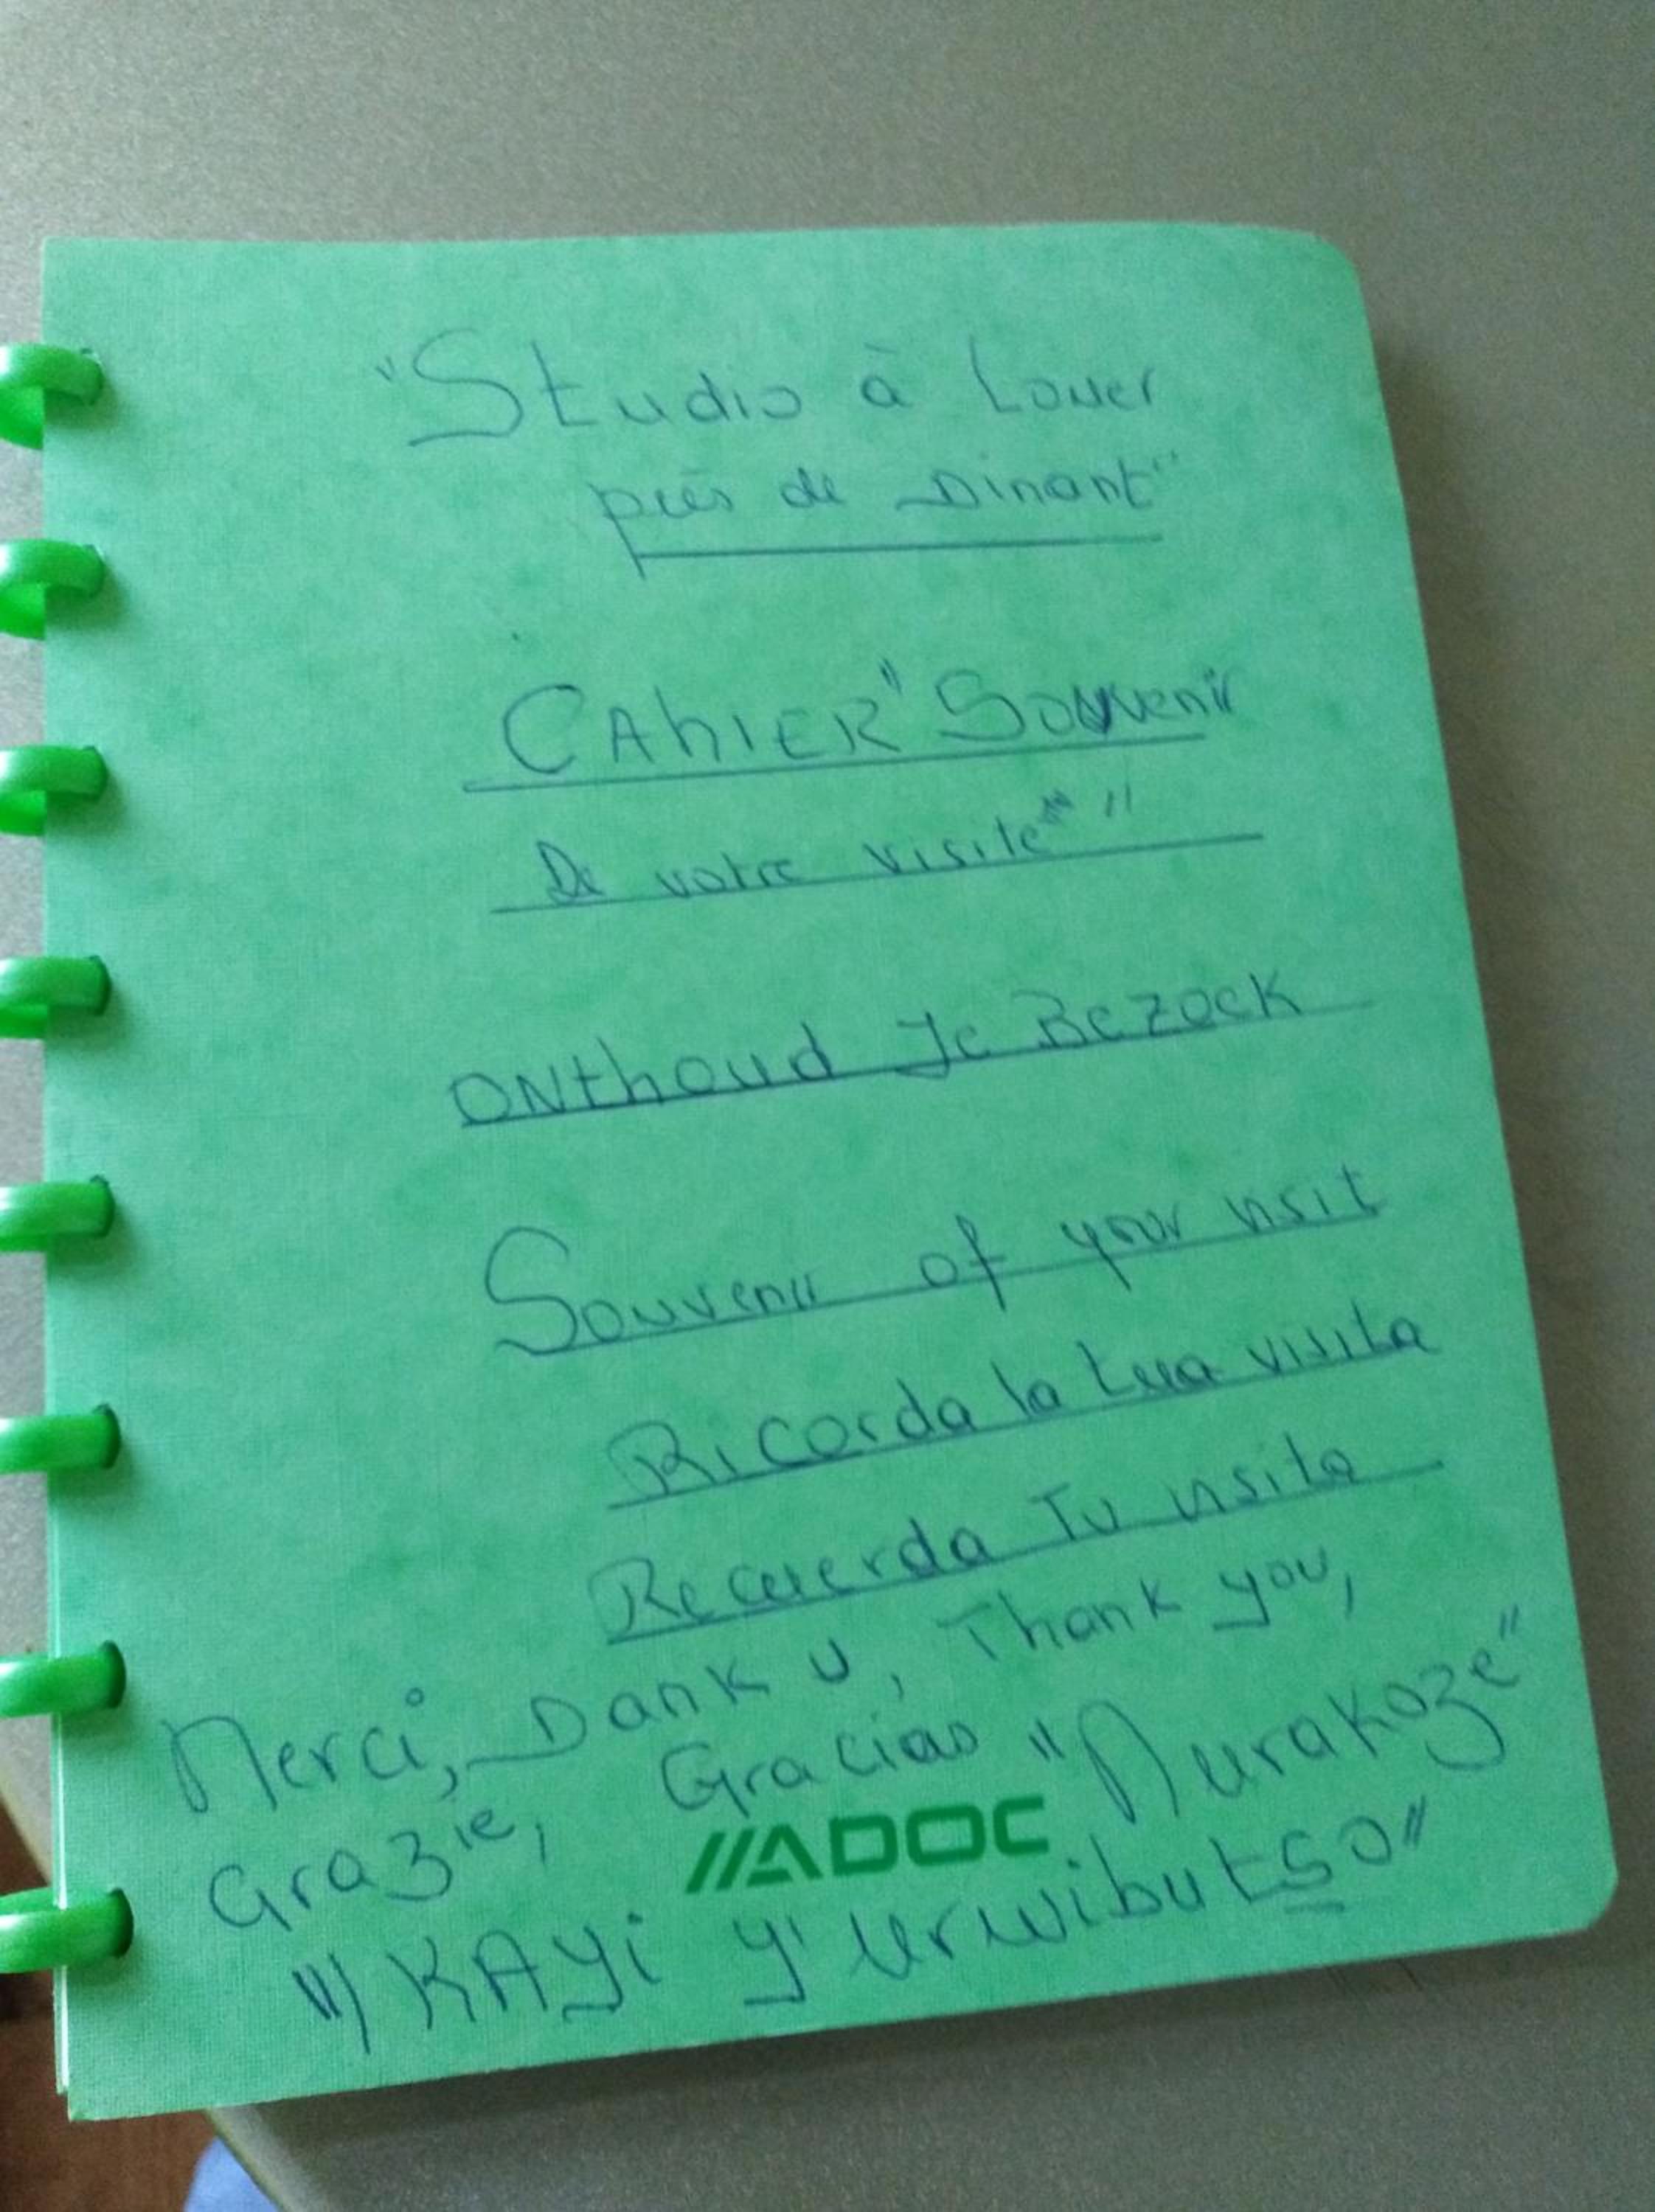 "Studio à Louer
près de Dinant"
CAhIER "Souvenir
De votre visite"
ONthoud Je Bezoek
Souvenir of your visit
Ricorda la tua visita
Recuerda Tu visita
Merci, Dank U, Thank you,
Grazie, Gracias "Murakoze"
//ADOC
"KAYi y'Urwibutso"